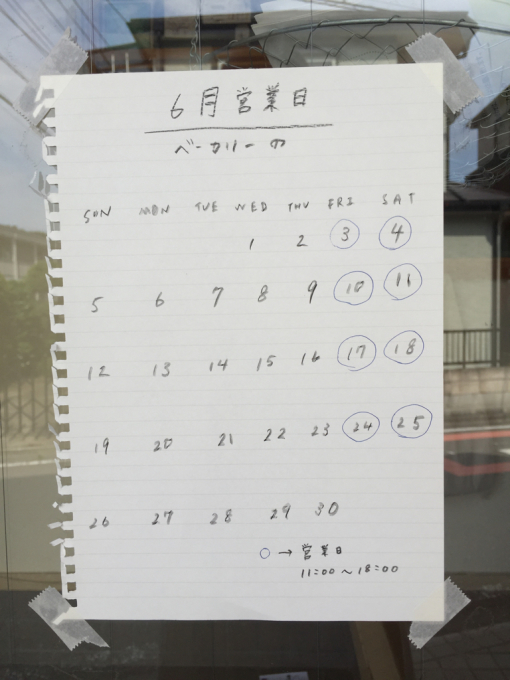 6月営業日
ベーカリーの
SUN MON TUE WED THU FRI SAT
1 2 3 4
5 6 7 8 9 10 11
12 13 14 15 16 17 18
19 20 21 22 23 24 25
26 27 28 29 30
○→営業日
11:00～18:00